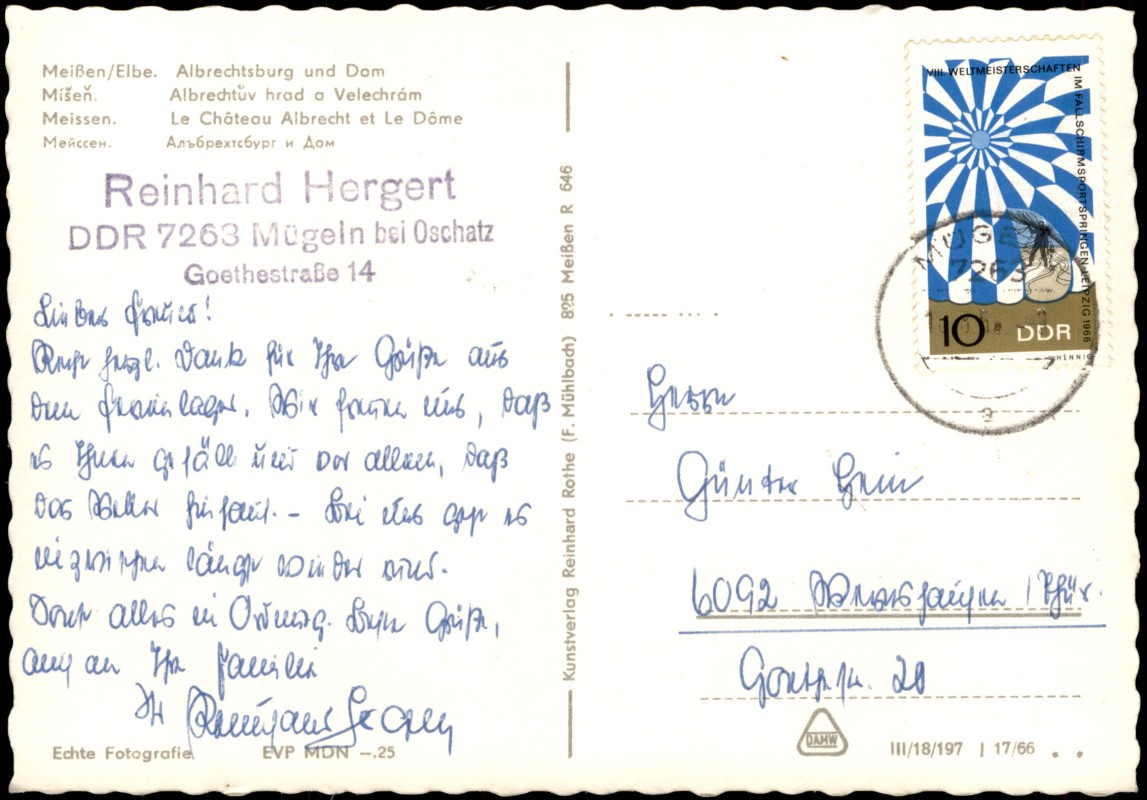 Meißen/Elbe. Albrechtsburg und Dom
Míšeň. Albrechtův hrad a Velechrám
Meissen. Le Château Albrecht et Le Dôme
Мейссен. Альбрехтсбург и Дом
Reinhard Hergert
DDR 7263 Mügeln bei Oschatz
Goethestraße 14
Recht herzl. Dank für Ihre Grüße aus
dem Ferienlager. Wir freuen uns, daß
es Ihnen gefällt und vor allem, daß
das Wetter hinhaut. – Bei uns geht es
inzwischen längst wieder rund.
Sonst alles in Ordnung. Beste Grüße,
auch an Ihre Familie
Ihr
Echte Fotografie
EVP MDN –.25
Kunstverlag Reinhard Rothe (F. Mühlbach) 825 Meißen R 646
VIII. WELTMEISTERSCHAFTEN
IM FALLSCHIRMSPORTSPRINGEN LEIPZIG 1966
10 DDR
HENNIG
MÜGE
7263
a
Herrn
Günter Hein
6092 /Thür.
20
DAMW
III/18/197 J 17/66